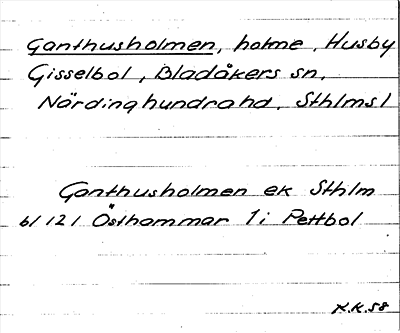 Ganthusholmen, holme, Husby
Gisselbol, Bladåkers sn,
Närdinghundra hd, Sthlms l
Ganthusholmen ek Sthlm
bl 121 Östhammar 1 i Pettbol
K.K.58